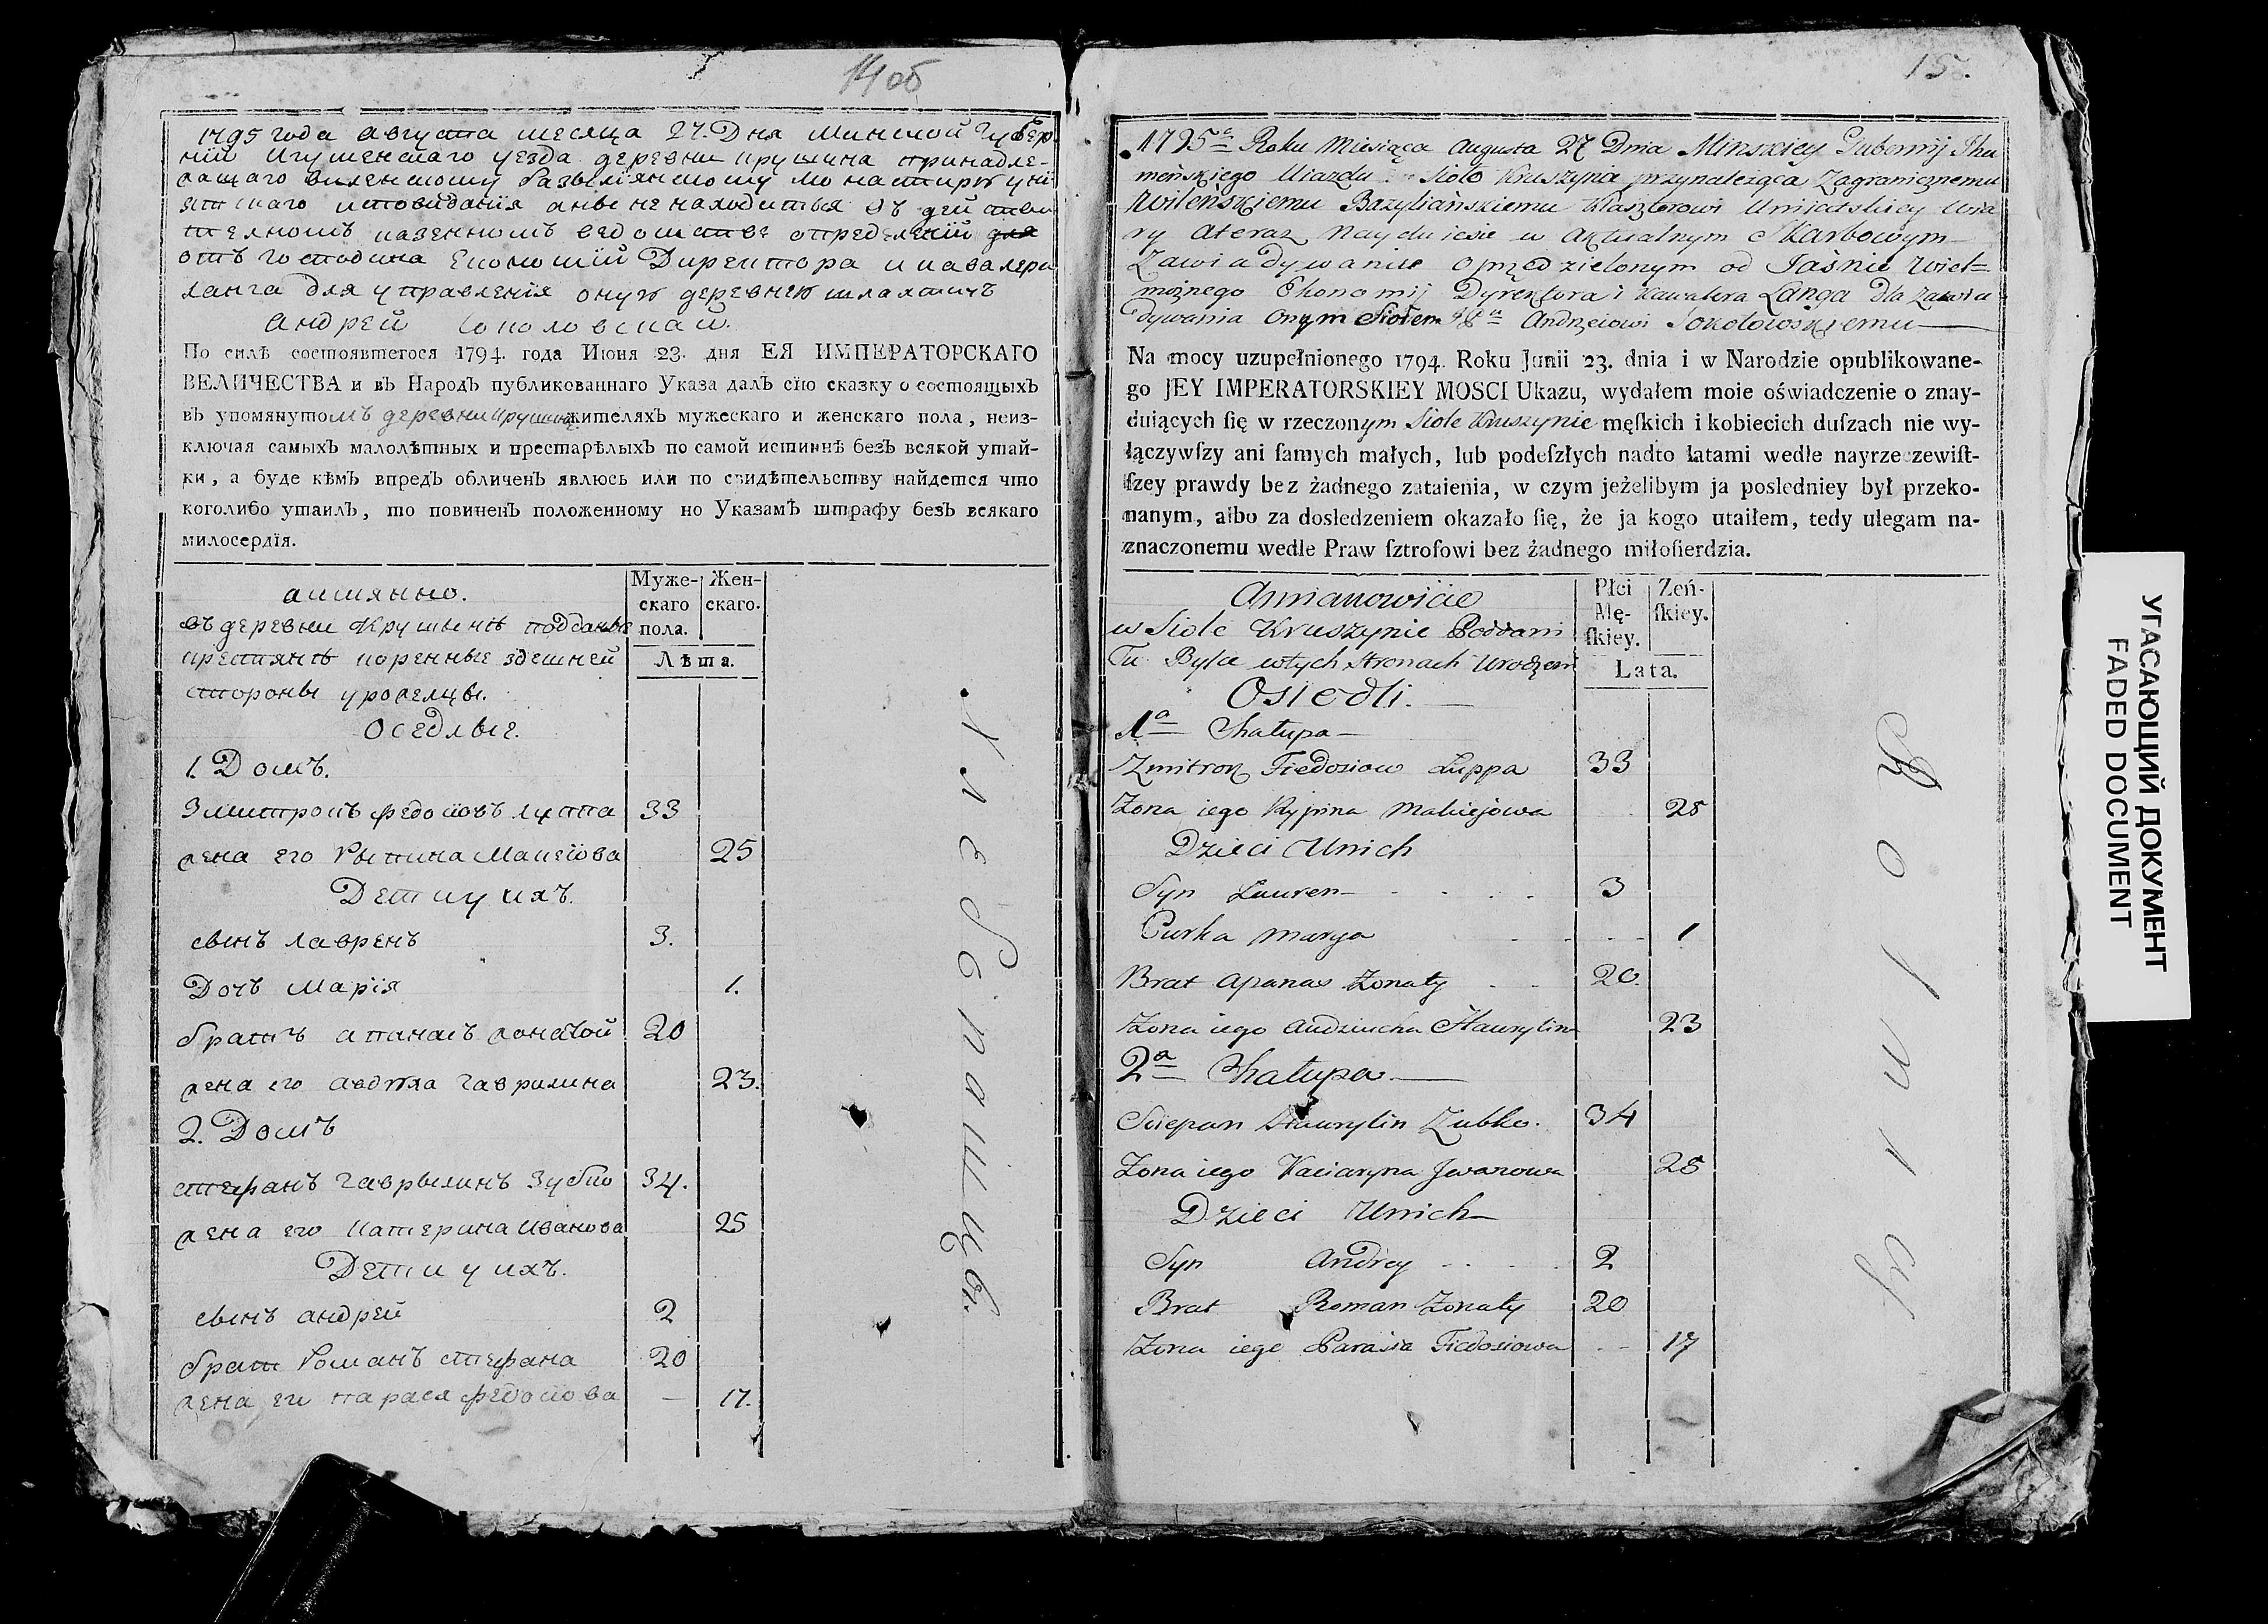 14об
1795 года августа месяца 27. Дня Минской Губер-
нiи Игуменскаго уезда деревни крушина принадле-
жащаго виленскому базылiянскому монастирю унi
ятскаго исповиданiя аныне находиться въ действи
телномъ казенномъ ведомстве определенiи для
отъ господина Економiи Директора и кавалера
ланга для управленiя оную деревнею шляхтичъ
андрей Соколовскай.
По силѣ состоявшегося 1794. года Июня 23. дня ЕЯ ИМПЕРАТОРСКАГО
ВЕЛИЧЕСТВА и въ Народъ публикованнаго Указа далъ сïю сказку о состоящыхъ
въ упомянутомъ деревни Крушине жителяхъ мужескаго и женскаго пола, неиз-
ключая самыхъ малолѣтных и престарѣлыхъ по самой истиннѣ безъ всякой утай-
ки, а буде кѣмъ впредъ обличенъ явлюсь или по свидѣтельству найдется что
коголибо утаилъ, то повиненъ положенному по Указамъ штрафу безъ всякаго
милосердïя.
аимянно.
Муже-
скаго
пола.
Жен-
скаго.
Лѣта.
въ деревни Крушынѣ подданые
крестянѣ коренные здешней
стороны урожелцы.
Оседлые.
1. Домъ.
Змитрокъ федосовъ луппа 33
жена его Рыпина Мацеiова 25
Дети у ихъ.
сынъ лавренъ 3.
Дочь Марiя 1.
братъ апанасъ жонатой 20
жена его авдюха гаврилина 23.
2. Домъ
стефанъ гаврылинъ Зубко 34.
жена его Катерина Иванова 25
Дети у ихъ.
сынъ андрей 2
брат Романъ стефана 20
жена ег парася федосова — 17.
15.
1795а Roku Miesiąca Augusta 27 Dnia Minskiey Gubernij Ihu
meńskiego Uiazdu Sioło Kruszyna przynależąca Zagranicznemu
Wileńskiemu Bazyliańskiemu Klasztorowi Uniatskiey Wia
ry Ateraz Nayduiesie w aktualnym Skarbowym
Zawiadywanie oprzedzielonym od Jaśnie Wiel=
możnego Ekonomij Dyrektora i Kawalera Langa dla zawia
dywania Onym Siołem Andrzeiowi Sokołowskiemu
Na mocy uzupełnionego 1794. Roku Junii 23. dnia i w Narodzie opublikowane-
go JEY IMPERATORSKIEY MOSCI Ukazu, wydałem moie oświadczenie o znay-
duiących ſię w rzeczonym Siole Kruszynie męſkich i kobiecich duſzach nie wy-
łączywſzy ani ſamych małych, lub podeſzłych nadto latami wedle nayrzeczewiſt-
ſzey prawdy bez żadnego zataienia, w czym jeżelibym ja posledniey był przeko-
nanym, albo za dosledzeniem okazało ſię, że ja kogo utaiłem, tedy ulegam na-
znaczonemu wedle Praw ſztrofowi bez żadnego miłoſierdzia.
Amianowicie
Płci
Mę-
ſkiey.
Zeń-
ſkiey.
Lata.
w Siole Kruszynie Poddani
Tu Byłe wtych Stronach Urodzeni
Osiedli.
1a Chałupa
Zmitrok Fiedosiow Łuppa 33
Żona iego Rypina Maciejowa 25
Dzieci Unich
Syn Lauren 3
Curka Marya 1
Brat Apanas Żonaty 20.
Żona iego Audziucha Hawrylina 23
2a Chałupa
Sciepan Hawrylin Zubko. 34
Żona iego Kaciaryna Jwanowa 25
Dzieci Unich
Syn Andrey 2
Brat Roman Żonaty 20
Żona iego Parasia Fiedosiowa 17
УГАСАЮЩИЙ ДОКУМЕНТ
FADED DOCUMENT